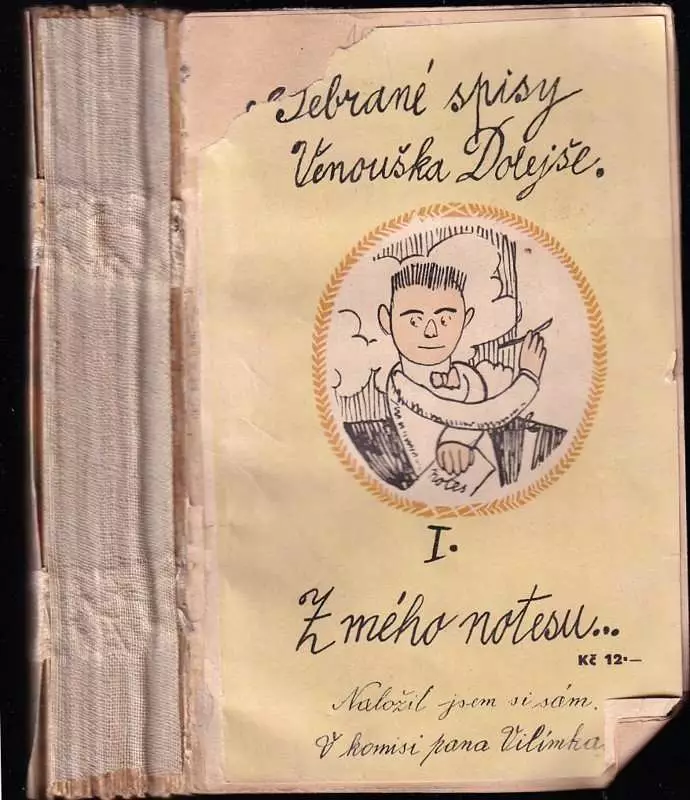 Sebrané spisy
Venouška Dolejše.
notes
I.
Z mého notesu...
Kč 12·—
Naložil jsem si sám.
V komisi pana Vilímka